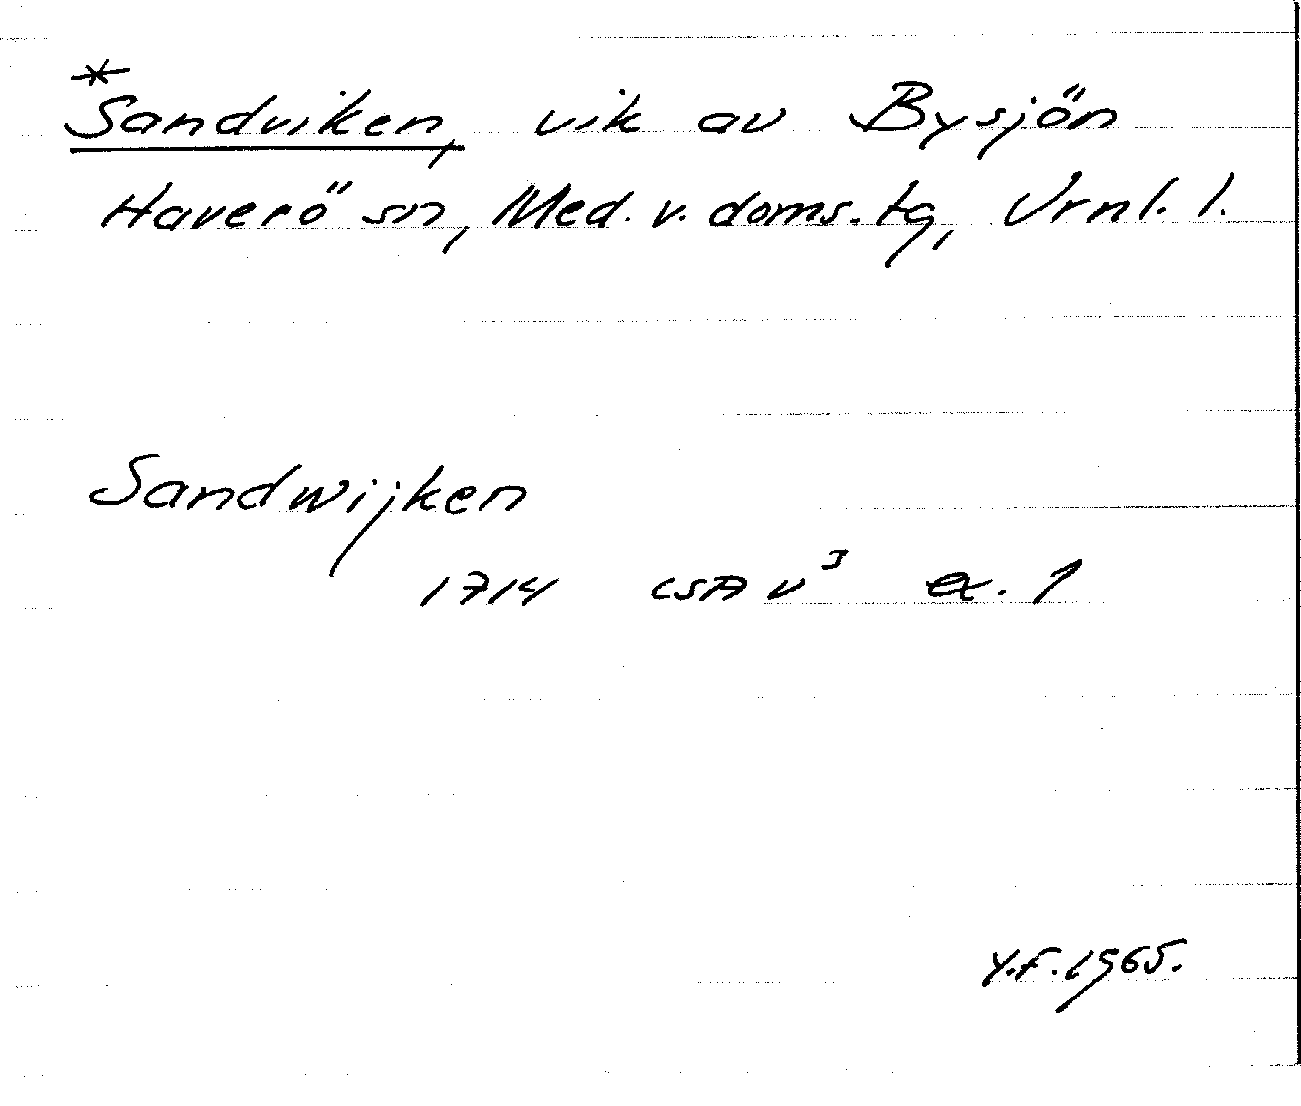 *
Sandviken, vik av Bysjön
Haverö sn, Med. v. doms. tg, Vrnl. l.
Sandwijken
1714 LSA v³ ex. 1
Y.F. 1965.